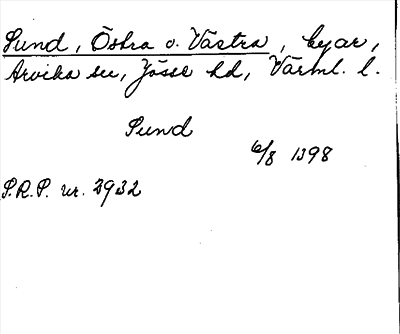 Sund, Östra o. Västra, byar,
Arvika sn, Jösse hd, Värml. l.
Sund
6/8 1398
S.R.P. nr. 2932